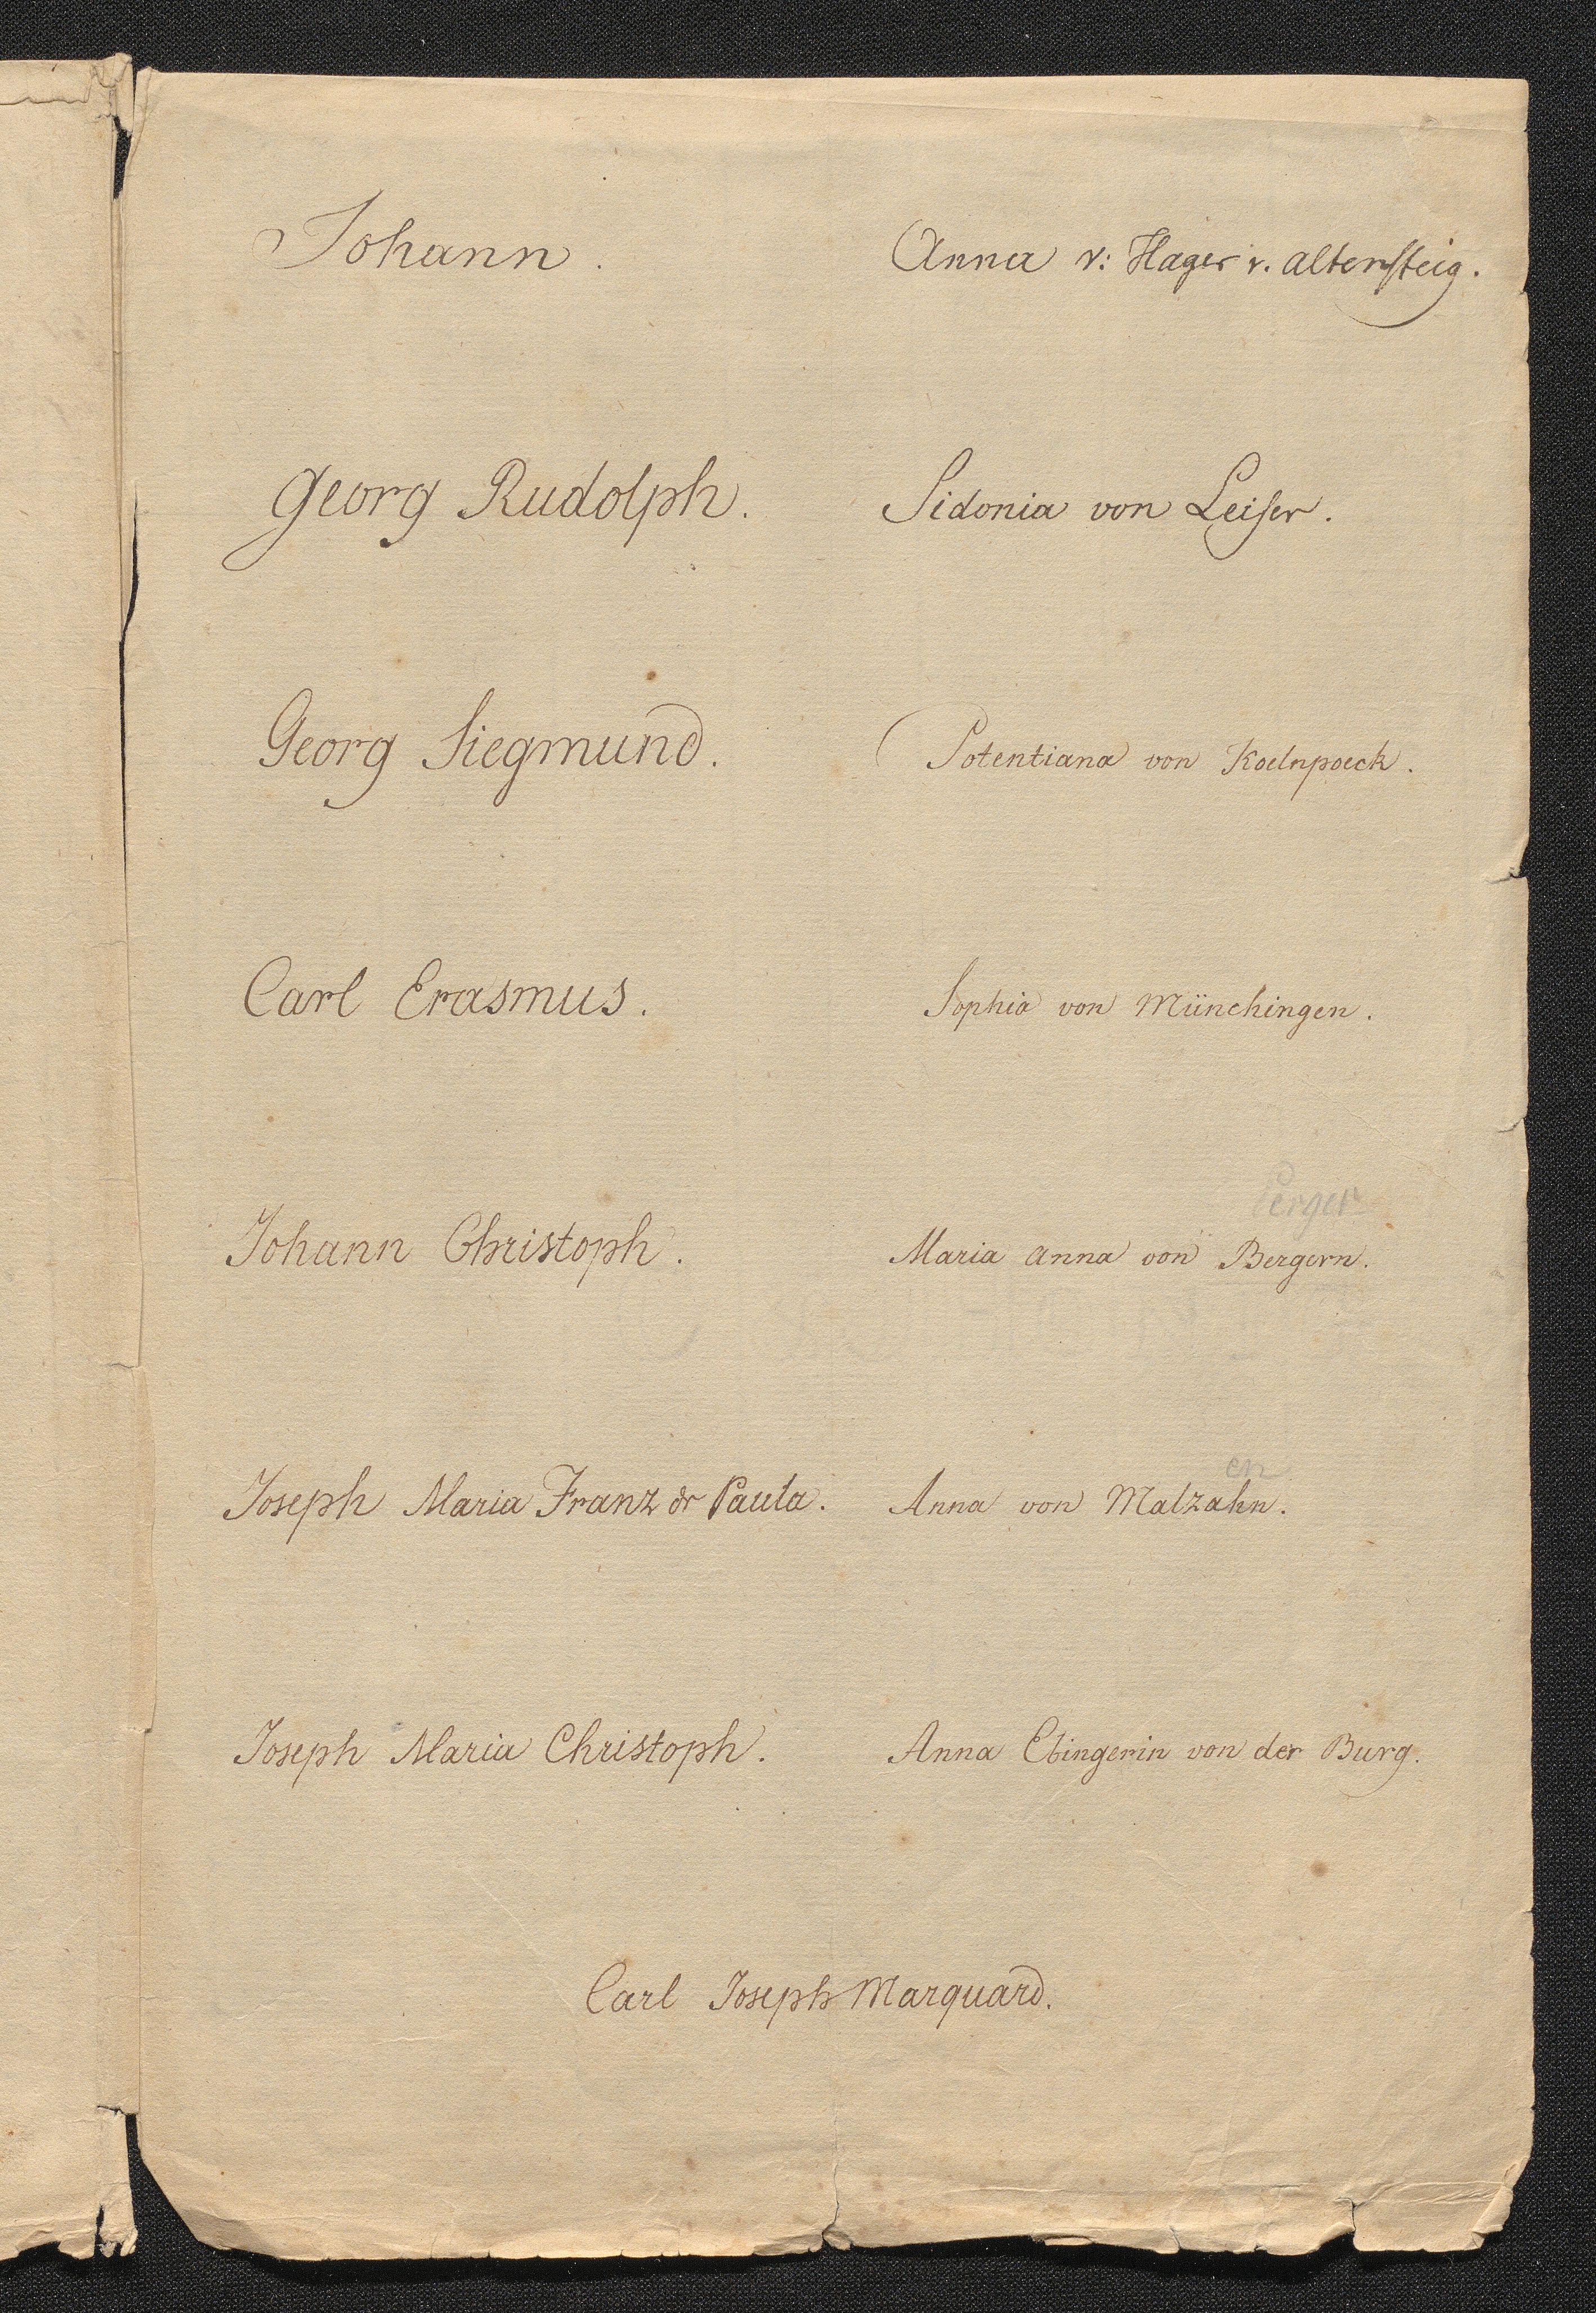 Johann.
Anna v: Hager v. altensteig.
Georg Rudolph.
Sidonia von Leiser.
Georg Siegmund.
Potentiana von Koelnpoeck.
Carl Erasmus.
Sophia von Münchingen.
Perger
Johann Christoph.
Maria anna von Bergern.
en
Joseph Maria Franz de Paula.
Anna von Malzahn.
Joseph Maria Christoph.
Anna Ebingerin von der Burg.
Carl Joseph Marquard.